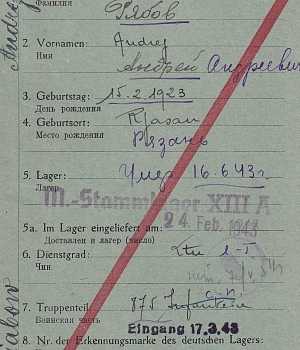 Фамилия
Рябов
2. Vornamen: Andrej
Имя
Андрей Андреевич
3. Geburtstag: 15.2.1923
День рождения
4. Geburtsort: Rjasan
Место рождения
Рязань
5. Lager: Умер 16.6.43г.
Лагер
M.-Stammlager XIII A
24. Feb. 1943
5a. Im Lager eingeliefert am:
Доставлен в лагер (число)
6. Dienstgrad:
Чин
7. Truppenteil: 875 Infanterie
Воинская часть
Eingang 17.3.43
8. Nr. der Erkennungsmarke des deutschen Lagers: